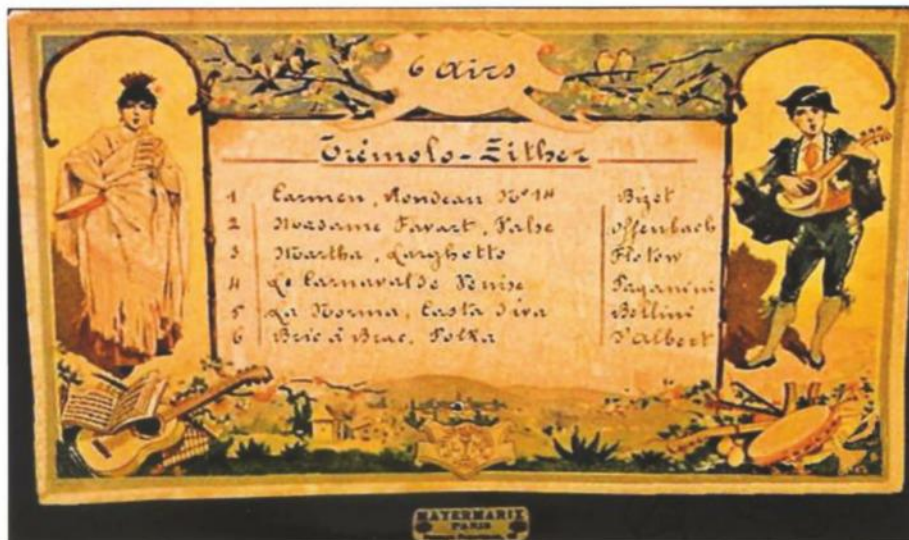 6 Airs
Trémolo-Zither
1 Carmen, Rondeau No 14 Bizet
2 Madame Favart, Valse Offenbach
3 Martha, Larghetto Flotow
4 Le Carnaval de Venise Paganini
5 La Norma, Casta Diva Bellini
6 Bric à Brac, Polka D'Albert
MAYERMARIX
PARIS